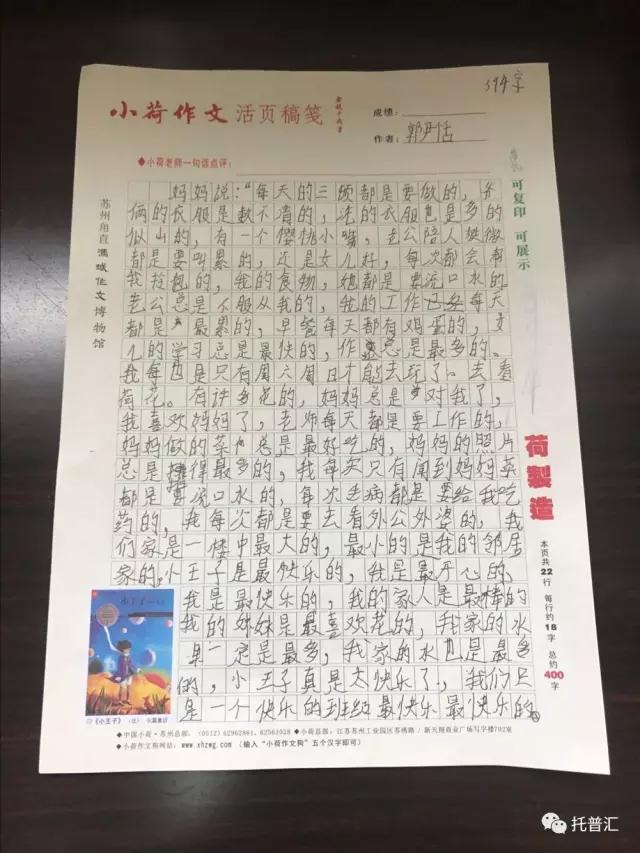 394字
小荷作文 活页稿笺
成绩:
作者:
◆小荷老师一句话点评:
可复印 可展示
苏州甪直 作文博物馆
妈妈说:“每天的三顿都是要做的,
俩的衣服是数不清的,洗的衣服也是多的
似山的,有一个樱桃小嘴,老公陪人
都是要叫累的,还是女儿好,每次都会帮
我拎包的,我的食物,她都是要流口水的
老公总是不够从我的,我的工作 每天
都是最累的,早餐每天都有鸡蛋的,女
儿的学习总是最快的,作业总是最多的。
我每 也是只有周六周日才能去玩了。去看
荷花。有许多花的,妈妈总是对我了,
我喜欢妈妈了,老师每天都是要工作的,
妈妈做的菜总是最好吃的,妈妈的照片
总是 得最多的,我每天只有闻到妈妈菜
都是要流口水的,每次生病都是要给我吃
药的,我每次都是要去看外公外婆的,我
们家是一楼中最大的,最小的是我的邻居
家的,小王子是最快乐的,我是最开心的、
我是最快乐的,我的家人是最棒的
我的妹妹是最喜欢花的,我家的水
果一定是最多,我家的水也是最多
的,小王子真是太快乐了,我们只
是一个快乐的班级最快乐最快乐的。
荷製造
本页共22行 每行约18字 总约400字
小王子
◎《小王子》(法)
◆中国小荷·苏州总部:(0512)62962861、62561028 ◆小荷总部:江苏苏州工业园区苏绣路/新天翔商业广场写字楼702室
◆小荷作文狗网站:www.xhzwg.com (输入“小荷作文狗”五个汉字即可)
托普汇